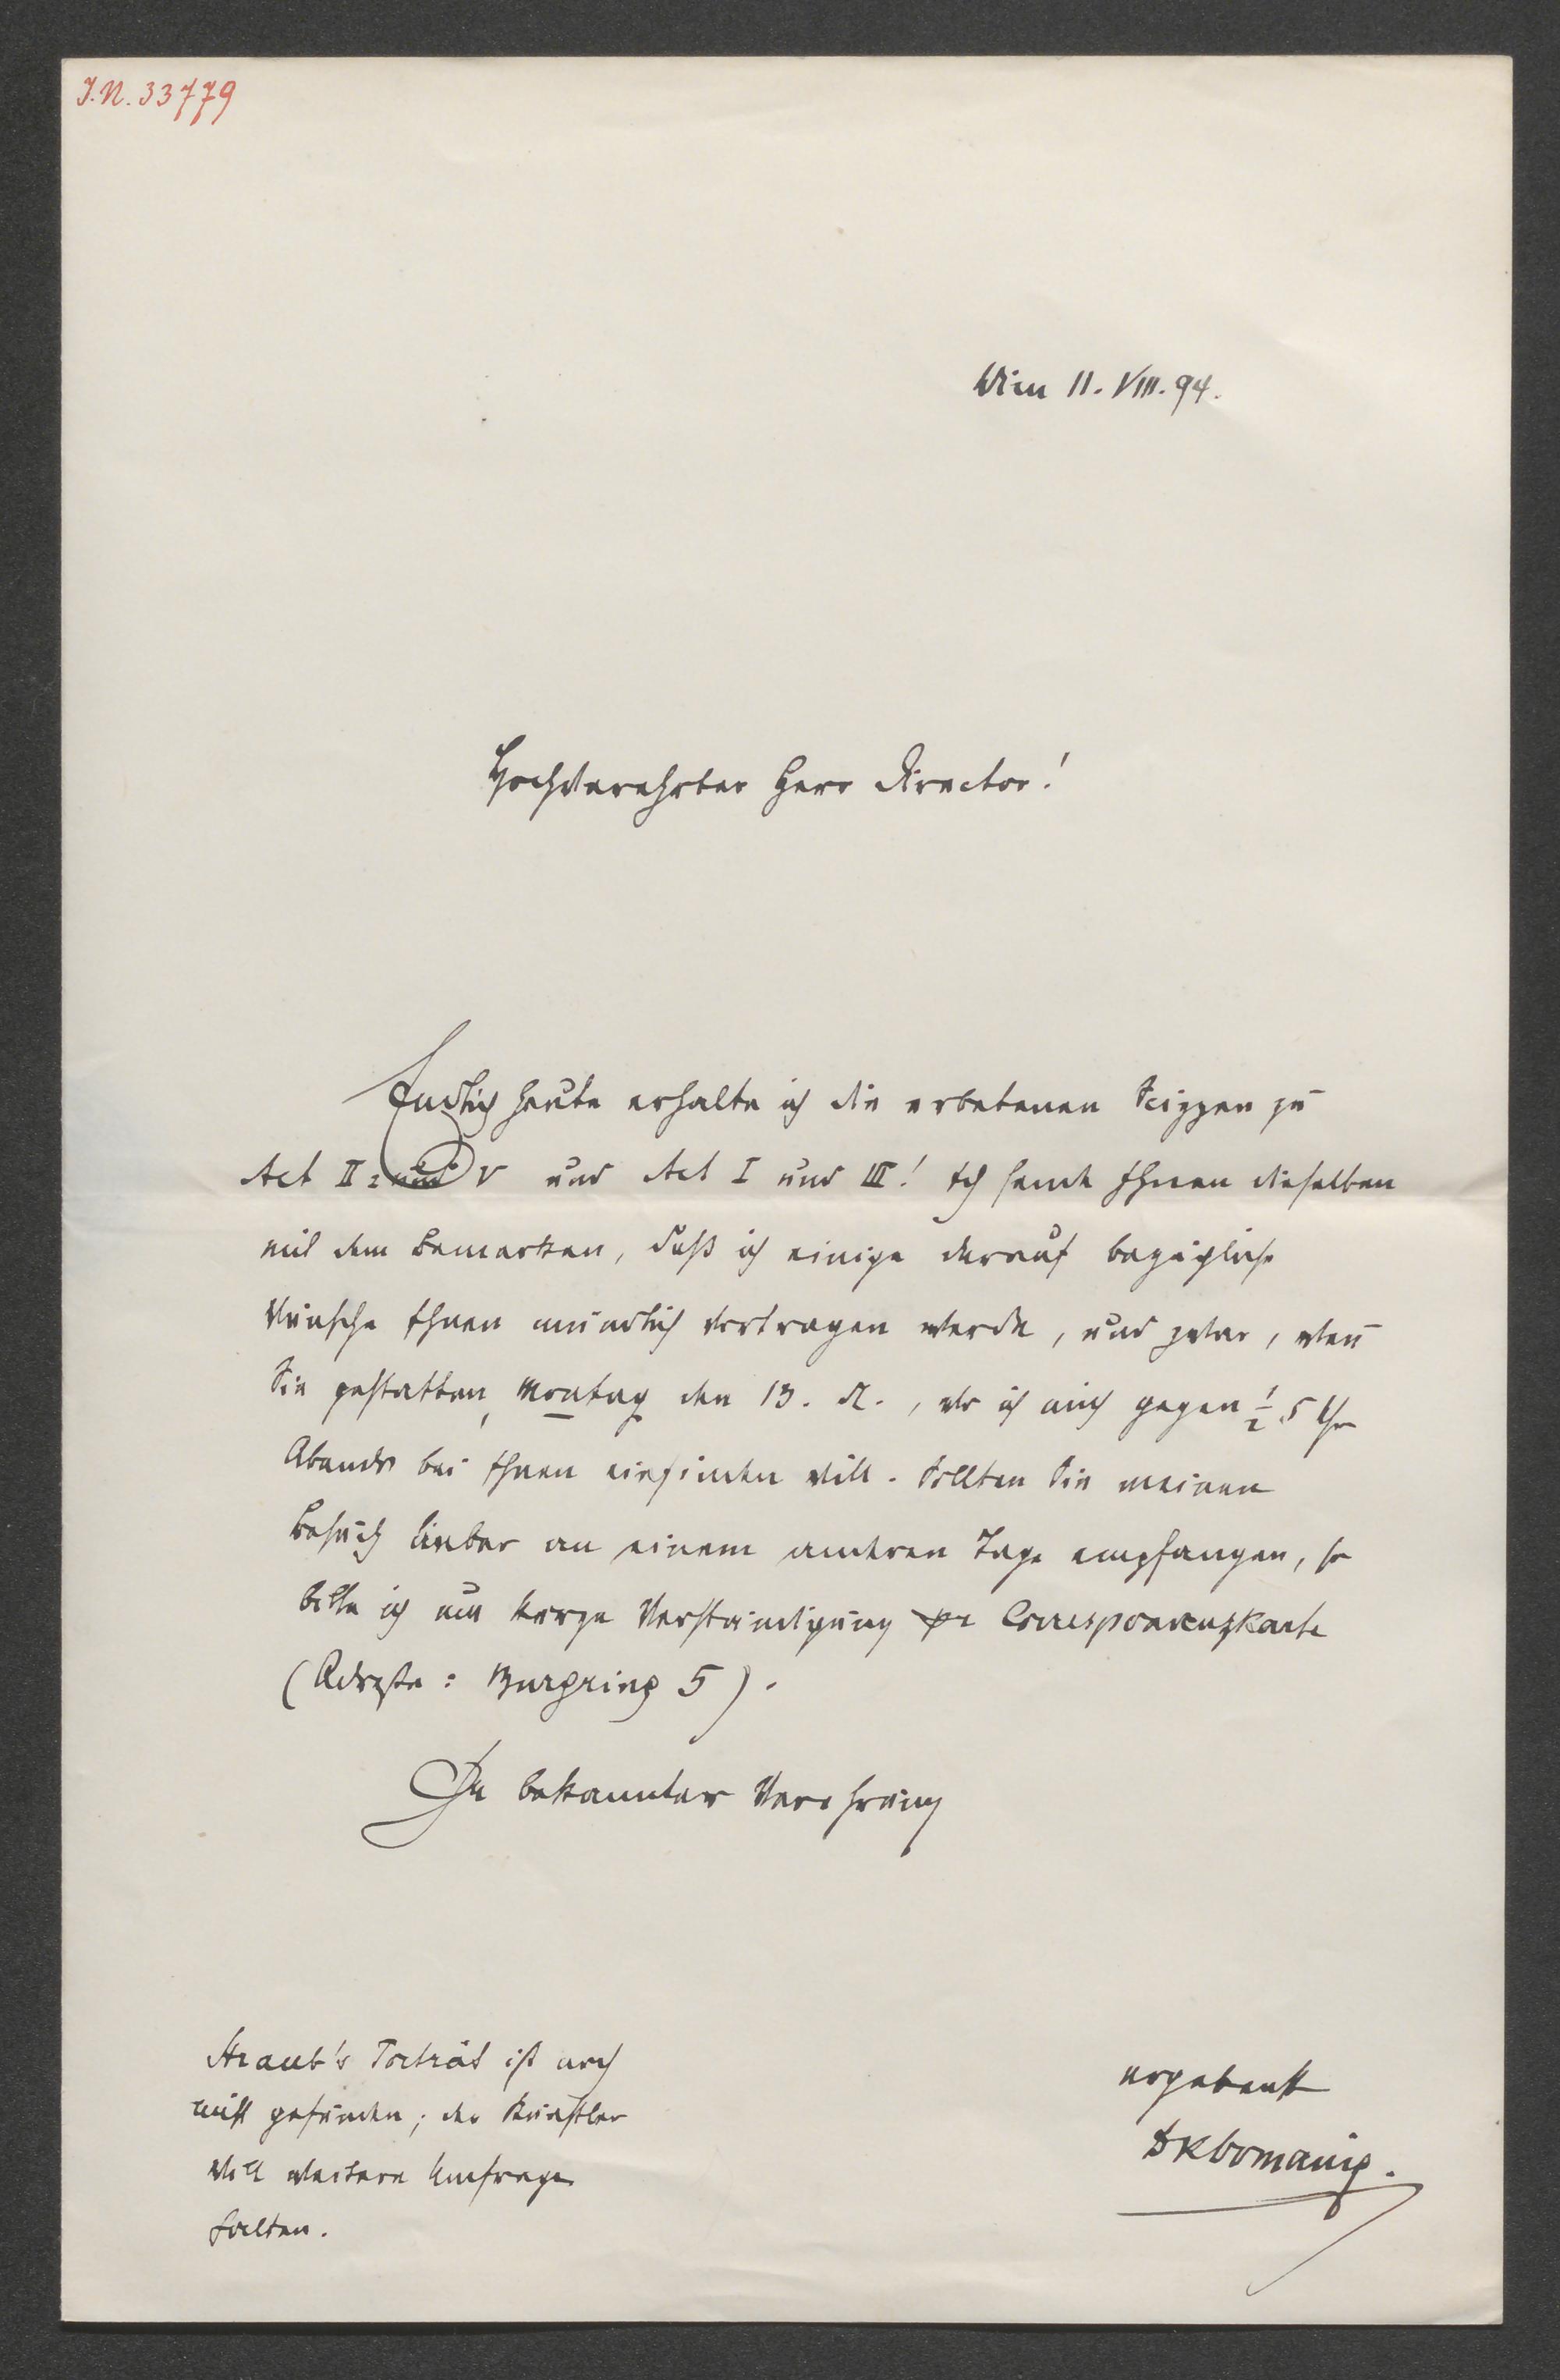 J.N. 33779
Wien 11. VIII. 94.
Hochverehrter Herr Director!
Endlich heute erhalte ich die erbetenen Scizzen zu
Act II 2 und V und Act I und III! Ich sende Ihnen dieselben
mit dem Bemerken, daß ich einige darauf bezügliche
Wünsche Ihnen mündlich vortragen werde, und zwar, wen̄
Sie gestatten, Montag den 13. d., wo ich mich gegen ½ 5 Uhr
Abends bei Ihnen einfinden will. Sollten Sie meinen
Besuch lieber an einem anderen Tage empfangen, so
bitte ich um kurze Verständigung pr Correspondenzkarte
(Adresse: Burgring 5).
In bekannter Verehrung
Straub's Porträt ist noch
nicht gefunden; der Künstler
will weitere Umfrage
halten.
ergebenst
DKDomanig.